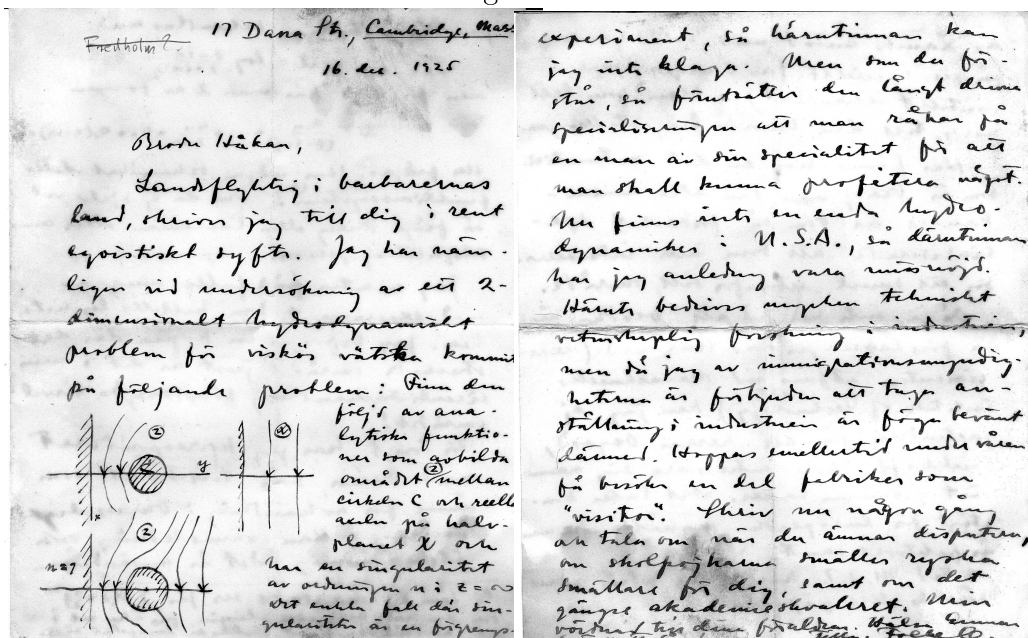 Fredholm?
17 Dana Str., Cambridge, Mass.
16. dec. 1925
Broder Håkan,
Landsflyktig i barbarernas
land, skriver jag till dig i rent
egoistiskt syfte. Jag har näm-
ligen vid undersökning av ett 2-
dimensionalt hydrodynamiskt
problem för viskös vätska kommit
på följande problem: Finn den
följd av ana-
lytiska funktio-
ner som avbilda
området (z) mellan
cirkeln C och reella
axeln på halv-
planet X och
har en singularitet
av ordningen n i z = ∞
Det enkla fall där sin-
gulariteten är en förgrenings-
z
y
α
x
z
n=?
experiment, så härutinnan kan
jag inte klaga. Men som du för-
står, så förutsätter den långt drivna
specialiseringen att man råkar på
en man av sin specialitet för att
man skall kunna profitera något.
Nu finns inte en enda hydro-
dynamiker i U.S.A., så därutinnan
har jag anledning vara missnöjd.
Härute bedrives mycken tekniskt
vetenskaplig forskning i industrien,
men då jag av immigrationsmyndig-
heterna är förbjuden att taga an-
ställning i industrien är föga bevänt
därmed. Hoppas emellertid under våren
få besöka en del fabriker som
"visitor". Skriv nu någon gång
och tala om när du ämnar disputera,
om skolpojkarna smäller ryska
smällare för dig, samt om det
gängse akademieskvallret. Min
vördnad till dina föräldrar. Hälsa